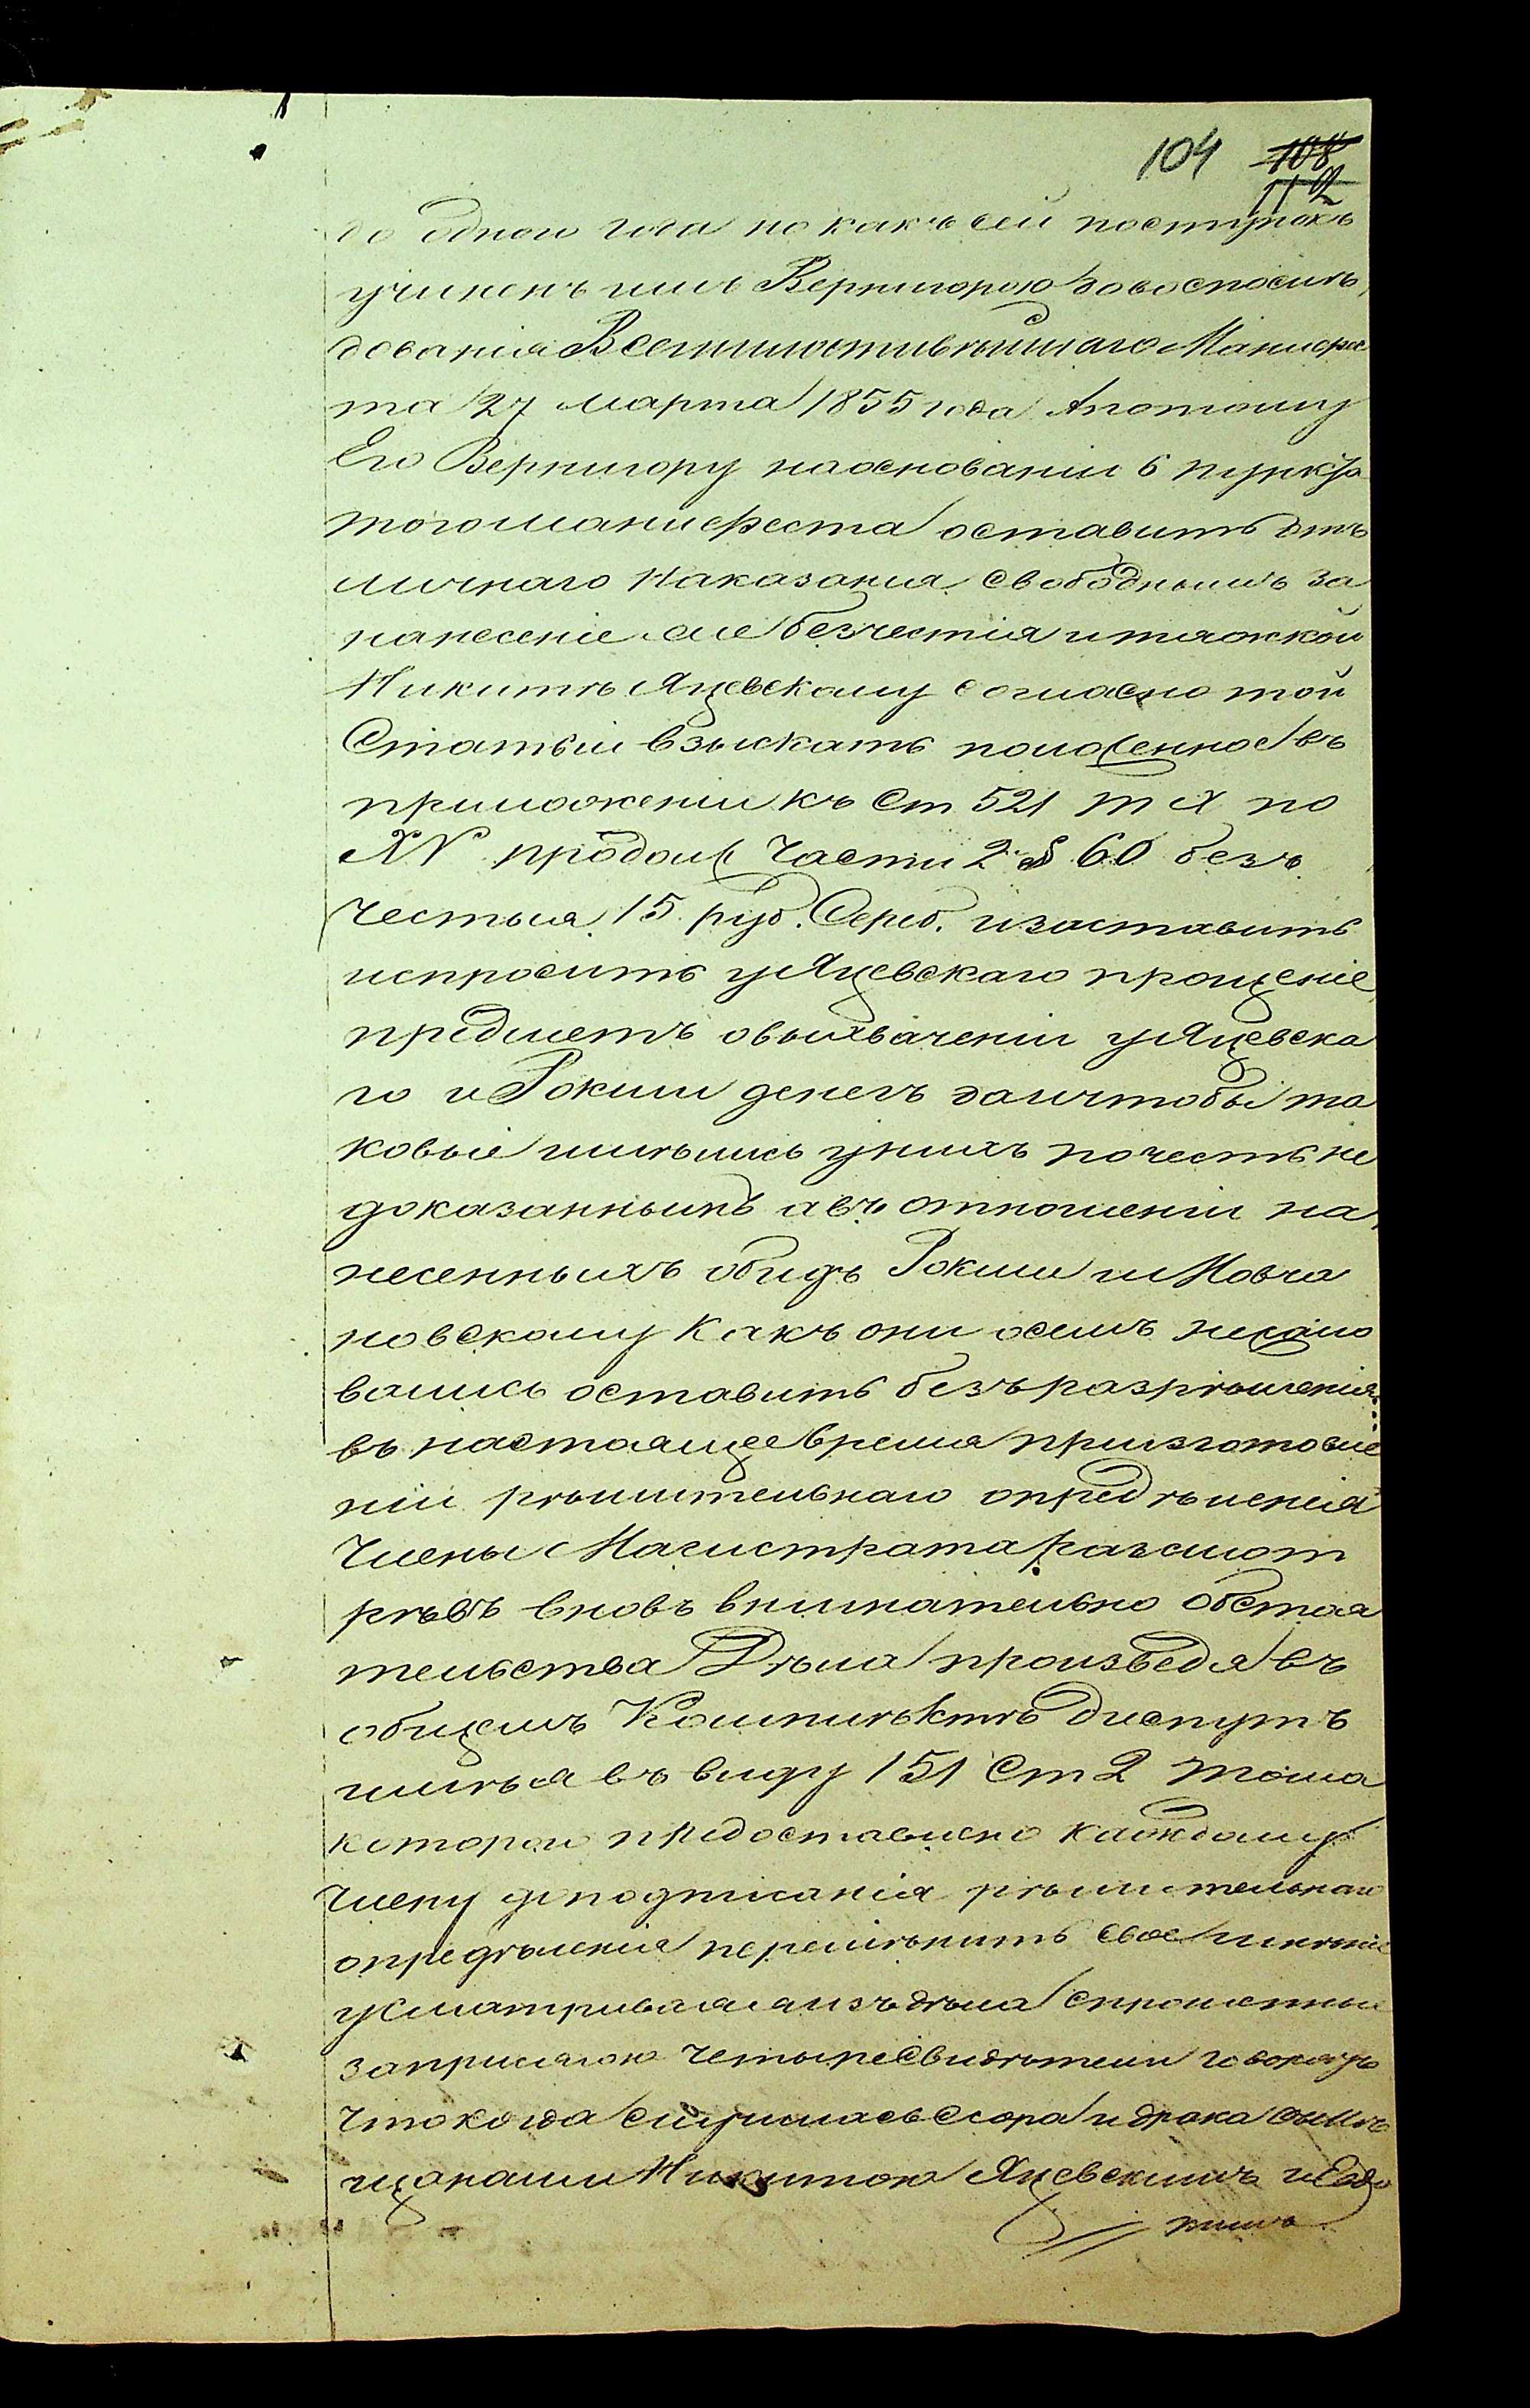 104 108
112
до одного года но какъ сей поступокъ
учиненъ имъ Вернигорою до воспослѣ
дованія Всемилостивѣйшаго Манифес
та 27 марта 1855 года А потому
Его Вернигору на основаніи 6 пункта
того манифеста оставить отъ
личнаго Наказанія свободнымъ За
нанесеніе же безчестія и тяжкой
Никитѣ Яцевскому согласно той
Статьи взыскать положенное въ
приложеніи къ Ст 521 т X по
XV продолж Части 2 § 60 безъ
честья 15 руб. Сереб. и заставить
испросить у Яцевскаго прощеніе
предметъ о выхваченіи у Яцевска
го и Рокиш денегъ да и чтобы та
ковые имѣлись у нихъ почесть не
доказаннымъ а въ отношеніи на
несенныхъ обидъ Рокиш и Мовча
новскому Какъ они о семъ не жало
вались оставить безъ разрѣшенія.
въ настоящее время при изготовле
ніи рѣшительнаго опредѣленія
Члены Магистрата разсмот
рѣвъ вновь внимательно обстоя
тельства Дѣла произведя въ
общемъ Комплѣктѣ диспутъ
имѣя въ виду 151 Ст 2 тома
которой предоставлено каждому
Члену до подписанія рѣшительнаго
опредѣленія перемѣнить свое мнѣніе
усматривая изъ дѣла спрошенные
за присягою Четыре Свидѣтели говорятъ
Что когда случилась ссора и драка съ мѣ
щанами Никитою Яцевскимъ и Евдо
кимъ